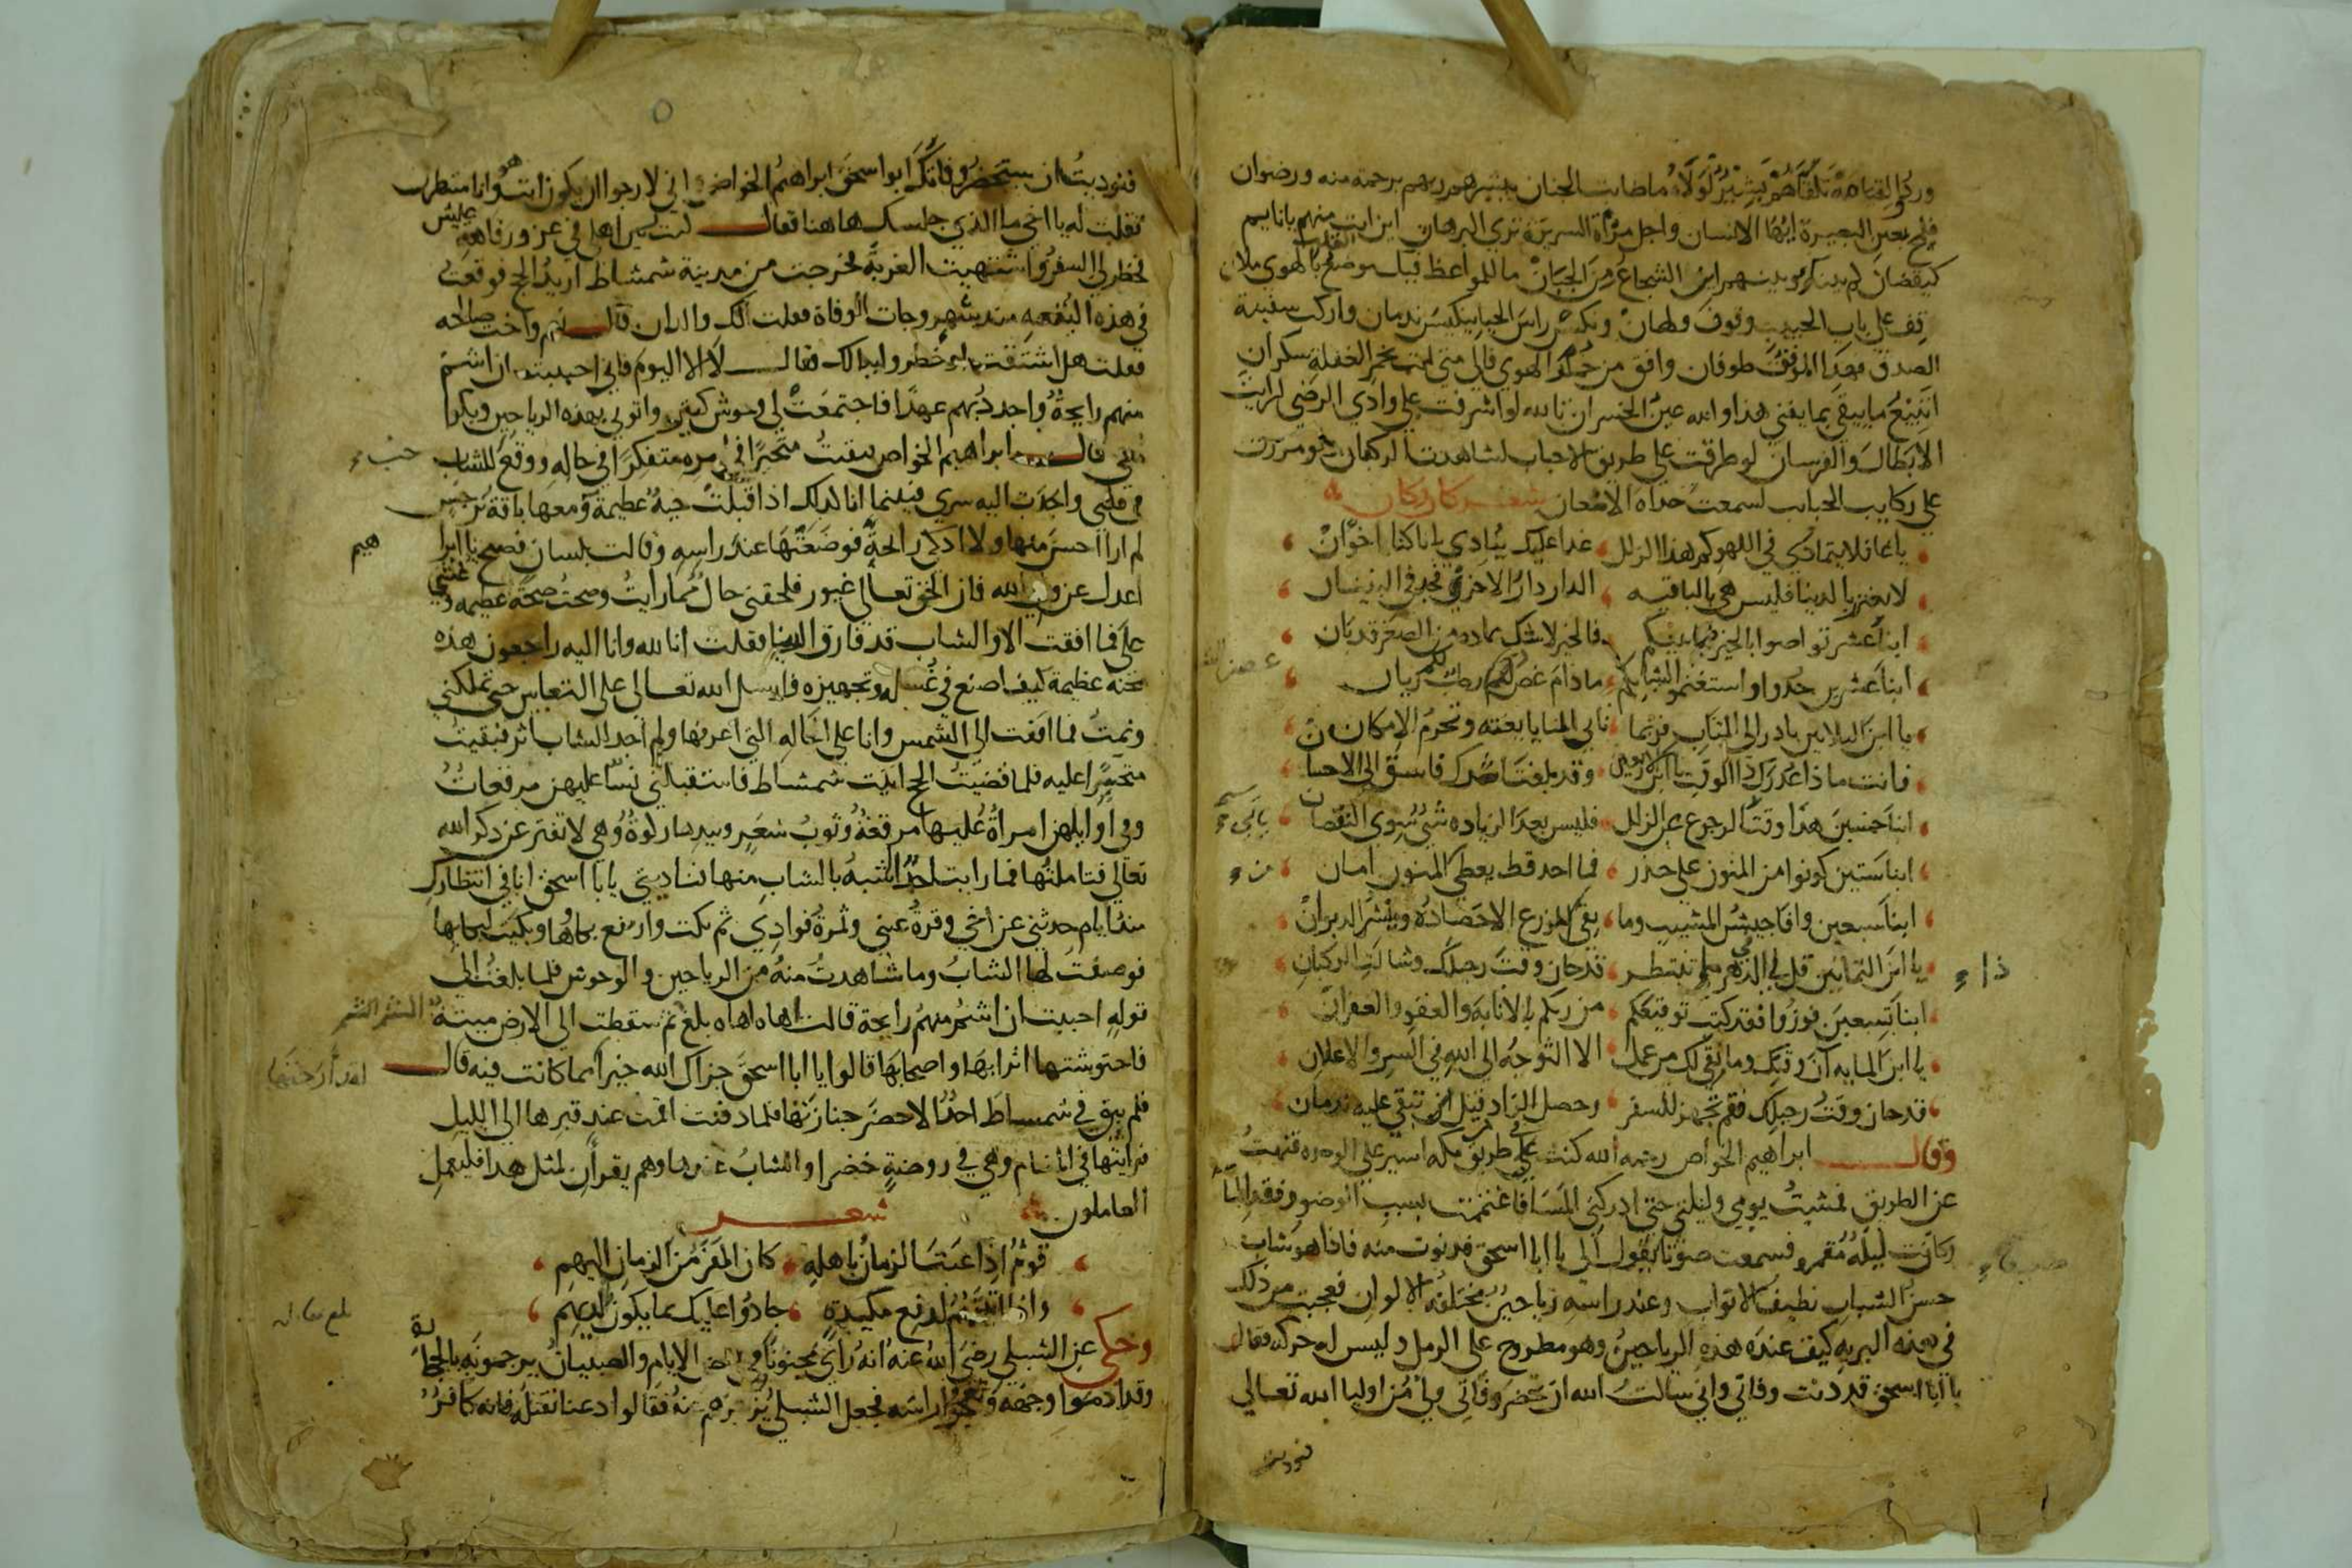 فلح بعين البصيرة ايها الانسان واجل مرآة السريرة ترى البرهان اين انت منهم يا نايم
كيقضان لم بينك وبينهم اين الشجاع من الجبان ما للمواعظ فيك موضع القلب بالهوى ملان
قف على باب الحبيب وقوف ولهان ونكس راس الحيا تنكيس ندمان واركب سفينة
الصدق فهذا الموقف طوفان وافق من خمار الهوى فالى متى انت بخمر الغفلة سكران
اتبيع ما يبقى بما يفنى هذا والله عين الخسران تالله لو اشرفت على وادي الرضى لرايت
الابطال والفرسان لو طرقت على طريق الاحباب لشاهدت الركبان لو مررت
على ركايب الحبايب لسمعت حداة الاضعان شعر كان وكان
يا غافلا يتمادى في اللهو كم هذا الزلل غدا عليك ينادي يا ناكثا خوان
لا تغتر بالدنيا فليس هي بالباقيه الدار دار الاخرى فجد في البنيان
ابنا عشر تواصوا بالخير فيما بينكم فالخير لا شك عاده من الصغر قد بان
ابنا عشرين جدوا واستغنموا شبابكم ما دام غصن لكم رطب ريان
يا ابن الثلاثين بادر الى المتاب فربما تاتي المنايا بغته وتحرم الامكان
فانت ماذا عذرك ذا الوقت يا ابن الاربعين وقد بلغت اشدك فاسبق الى الاحسان
ابنا خمسين هذا وقت الرجوع عن الزلل فليس بعد الزياده شي سوى النقصان
ابنا ستين كونوا من المنون على حذر فما احد قط يعطى المنون امان
ابنا سبعين وافا جيش المشيب وما بقى للزرع الا حصاده وينشر الديوان
يا ابن الثمانين قل لي في الدهر ماذا تنتظر قد حان وقت رحيلك وشالت الركبان
ابنا تسعين فوزوا فقد كتب توقيعكم من ربكم بالانابه والعفو والغفران
يا ابن المايه آن وقتك وما بقى لك من عمل الا التوجه الى الله في السر والاعلان
قد حان وقت رحيلك فقم تجهز للسفر وحصل الزاد قبل ان تبقى عليه ندمان
وقال ابراهيم الخواص رحمه الله كنت على طريق مكه اسير على الوحده فتهت
عن الطريق فمشيت يومي وليلتي حتى ادركني المسا فاغتممت بسبب الوضو وفقد الما
وكانت ليلة مقمره فسمعت صوتا يقول الي يا ابا اسحق فدنوت منه فاذا هو شاب
حسن الشباب نظيف الاثواب وعند راسه رياحين مختلفه الالوان فعجبت من ذلك
في هذه البريه كيف عنده هذه الرياحين وهو مطروح على الرمل وليس له حركه فقال
يا ابا اسحق قد دنت وفاتي واني سالت الله ان يحضر وفاتي ولي من اوليا الله تعالى
فنوديت
فنوديت ان يستحضر وفاتك ابو اسحق ابراهيم الخواص اني لارجوا ان يكون انت هو وانا منتظرك
فقلت له يا اخي ما الذي حبسك هاهنا فقال كنت بين اهلي في عز ورفاهية عيش
فخطر لي السفر واشتهيت الغربة فخرجت من مدينة شمشاط اريد الحج فوقعت
في هذه البقعه منذ شهر وجات الوفاة فقلت الك والدان قال نعم واخت صالحه
فقلت هل اشتقت اليهم خطروا ببالك فقال لا الا اليوم فاني احببت ان اشم
منهم رايحة واجدد بهم عهدا فاجتمعت لي وحوش كثيره واتوني بهذه الرياحين وبكوا
معي قال ابراهيم الخواص فبقيت متحيرا في امره متفكرا في حاله ووقع للشاب
في قلبي وانجذب اليه سري فبينما انا كذلك اذ اقبلت حية عظيمة ومعها باقة نرجس
لم ار احسن منها ولا اذكى رايحة فوضعتها عند راسه وقالت بلسان فصيح يا ابرا
هيم
اعدل عن ولي الله فان الحق تعالى غيور فلحقني حال مما رايت وصحت صيحة عظيمه وغشي
علي فما افقت الا والشاب قد فارق الدنيا فقلت انا لله وانا اليه راجعون هذه
محنه عظيمة كيف اصنع في غسله وتجهيزه فارسل الله تعالى علي النعاس حتى تملكني
ونمت فما افقت الى الشمس وانا على الحاله التي اعرفها ولم اجد للشاب اثر فبقيت
متحيرا عليه فلما قضيت الحج اتيت شمشاط فاستقبلني نسا عليهن مرقعات
وفي اوايلهن امراة عليها مرقعة وثوب شعر وبيدها ركوة وهي لا تفتر عن ذكر الله
تعالى فتاملتها فما رايت احدا اشبه بالشاب منها فنادتني يا ابا اسحق انا في انتظارك
منذ ايام حدثني عن اخي وقرة عيني وثمرة فوادي ثم بكت وارتفع بكاها وبكيت لبكايها
فوصفت لها الشاب وما شاهدت منه من الرياحين والوحوش فلما بلغت الى
قوله احببت ان اشم منهم رايحة قالت اهاه اهاه بلغ الشم الشم ثم سقطت الى الارض ميتة
فاحتوشتها اترابها واصحابها قالوا يا ابا اسحق جزاك الله خيرا مما كانت فيه قال
فلم يبق في شمساط احد الا حضر جنازتها فلما دفنت اقمت عند قبرها الى الليل
فرايتها في المنام وهي في روضة خضرا والشاب عندها وهم يقران لمثل هذا فليعمل
العاملون شعر
قوم اذا عبث الزمان باهله كان المفر من الزمان اليهم
واذا اتيتهم لدفع مكيدة جادوا عليك بما يكون لديهم
وحكى عن الشبلي رضي الله عنه انه راى مجنونا في بعض الايام والصبيان يرجمونه بالحجارة
وقد ادموا وجهه وشجوا راسه فجعل الشبلي يزجرهم عنه فقالوا دعنا نقتله فانه كافر